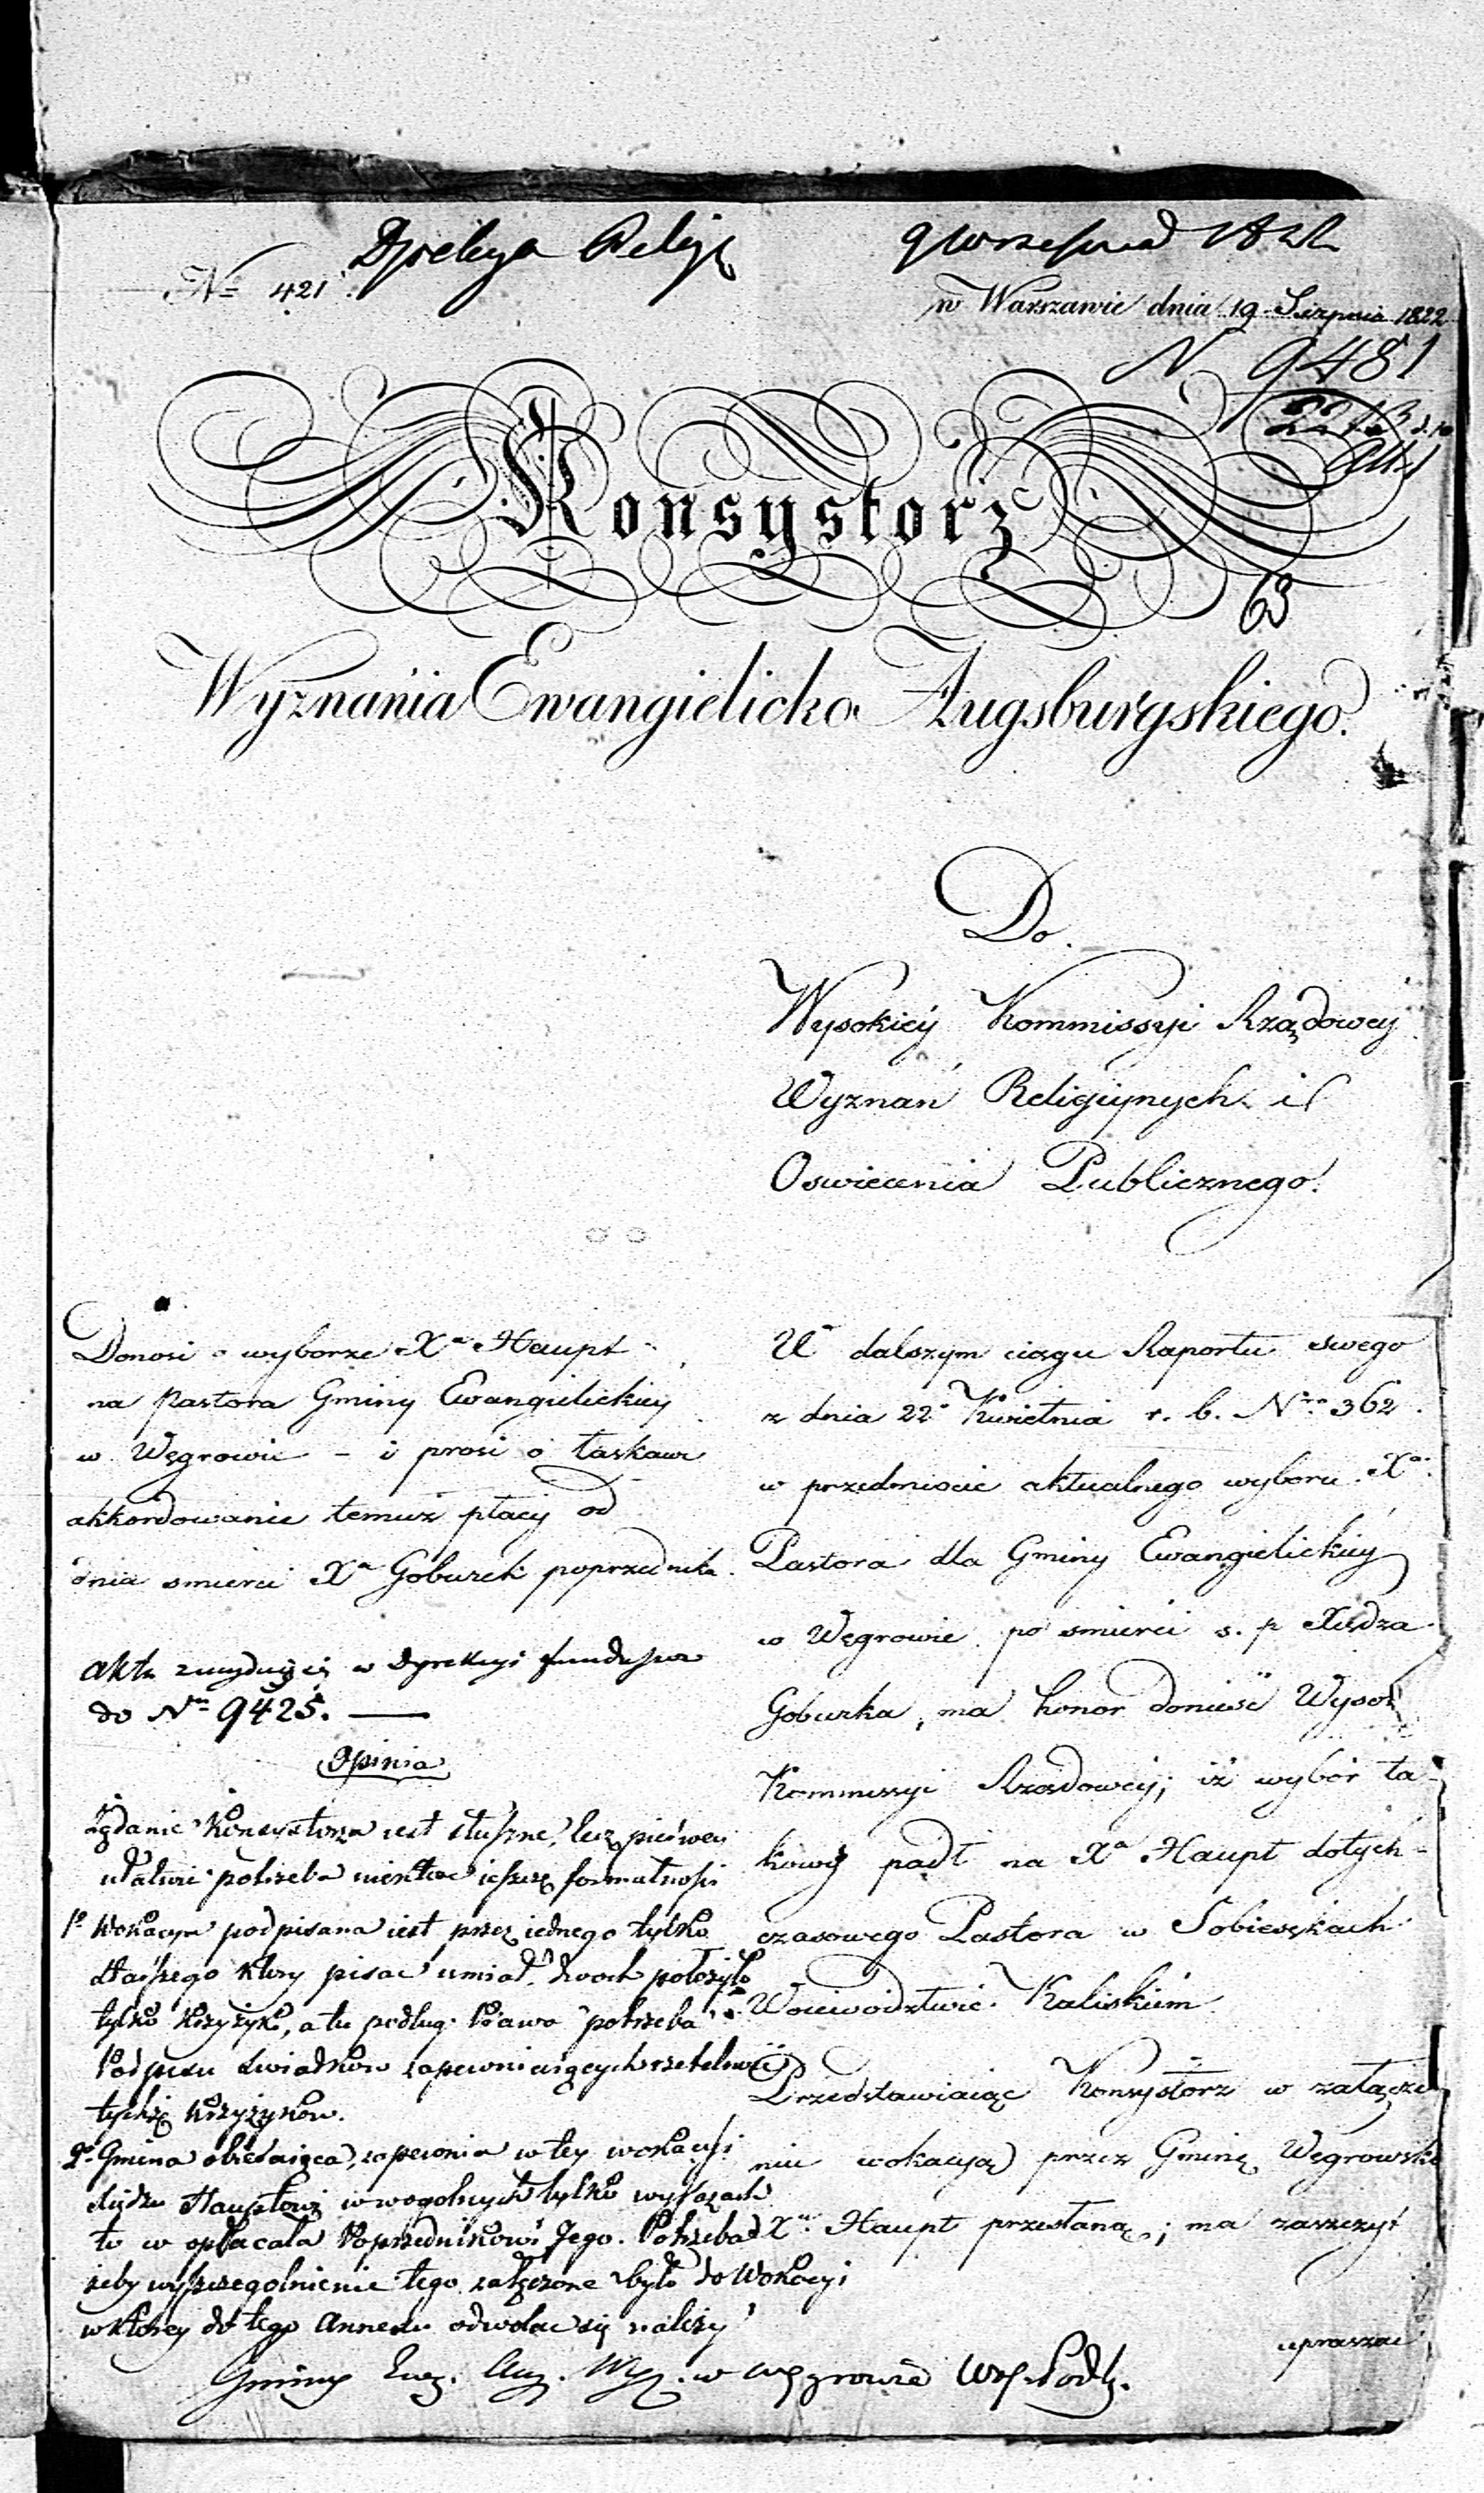 Dyrekcya Religij
9 Września 1822
No 421.
w Warszawie dnia 19 Sierpnia 1822
N 9481
63
Konsystorz
Wyznania Ewangielicko Augsburgskiego.
Do
Wysokiéy Kommissyi Rządowey
Wyznań Religiynych i
Oswiecenia Publicznego.
Donosi o wyborze Xa Haupt
na Pastora Gminy Ewangielickiey
w Węgrowie – i prosi o łaskawe
akkordowanie temuż płacy od
dnia smierci Xa Goburek poprzednika.
akta znayduią się w Dyrekcyi funduszow
do Nru 9425. —
Opinia
Żądanie Konsystorza iest słuszne, lecz pierwey
ułatwić potrzeba niektóre ieszcze formalności
1o Wokacya podpisana iest przez iednego tylko
starszego który pisać umiał, dwoch położyło
tylko krzyżyki, a tu podług Prawa potrzeba
Podpisu świadków zapewniaiących rzetelność
tychże krzyżyków.
2o Gmina obieraiąca, zapewnia w tey wokacyi
Xiędzu Hauptowi w wogolnych tylko wyrazach
to co opłacała Poprzednikowi Jego. Potrzeba
żeby wyszczegolnienie tego załączone było do Wokacyi
w którey do tego Annexu odwołać się należy
W dalszym ciągu Raportu swego
z dnia 22o Kwietnia r. b. Nro 362
w przedmiocie aktualnego wyboru Xa
Pastora dla Gminy Ewangielickiéy
w Węgrowie po smierci s. p Xiędza
Goburka, ma honor donieść Wysok
Kommissyi Rządowéy, iż wybór ta-
kowy padł na Xa Haupt dotych-
czasowego Pastora w Sobiesękach
Woiewództwie Kaliskiém
Przedstawiaiąc Konsystorz w załącze
niu wokacyą przez Gminę Węgrowską
Xa Haupt przesłaną; ma zaszczyt
upraszać
Gminy Ewg. Aug. Wyz. w Węgrowie Wof. Podl.